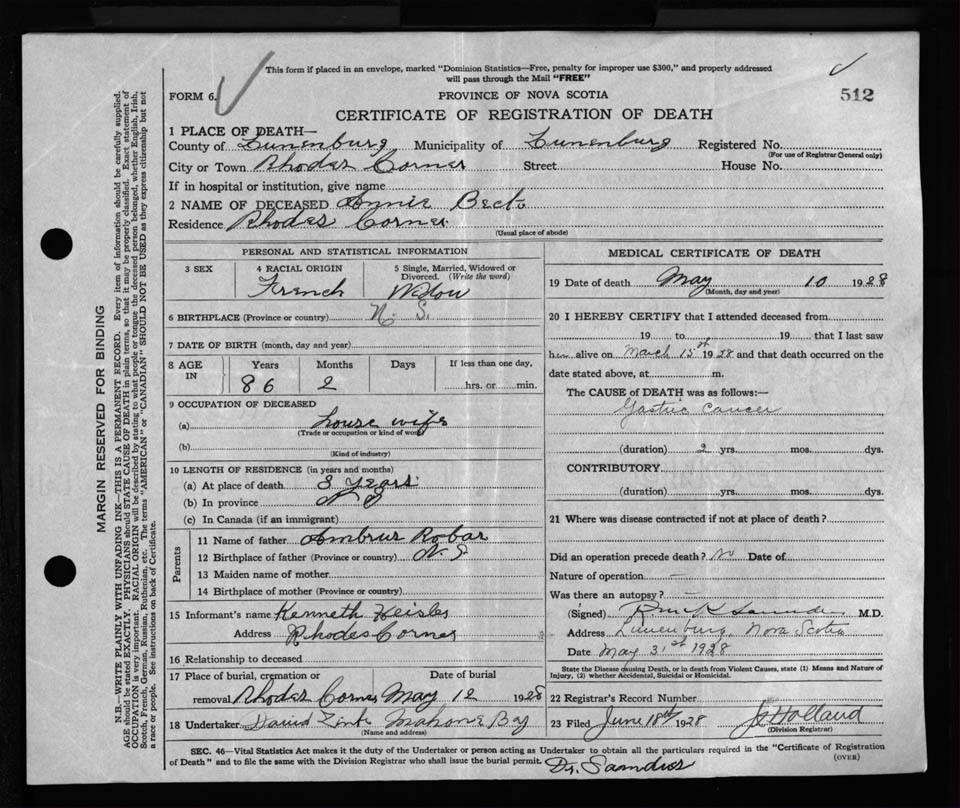 This form if placed in an envelope, marked "Dominion Statistics—Free, penalty for improper use $300," and properly addressed
will pass through the Mail "FREE"
FORM 6.
PROVINCE OF NOVA SCOTIA
512
CERTIFICATE OF REGISTRATION OF DEATH
1 PLACE OF DEATH—
County of Lunenburg Municipality of Lunenburg Registered No.
(For use of Registrar General only)
City or Town Rhodes Corner Street House No.
If in hospital or institution, give name
2 NAME OF DECEASED Annie Beck
Residence Rhodes Corner
(Usual place of abode)
PERSONAL AND STATISTICAL INFORMATION
3 SEX 4 RACIAL ORIGIN 5 Single, Married, Widowed or Divorced. (Write the word)
French Widow
6 BIRTHPLACE (Province or country) N. S.
7 DATE OF BIRTH (month, day and year)
8 AGE IN Years Months Days If less than one day,
86 2 hrs. or min.
9 OCCUPATION OF DECEASED
(a) house wife
(Trade or occupation or kind of work)
(b)
(Kind of industry)
10 LENGTH OF RESIDENCE (in years and months)
(a) At place of death 3 years
(b) In province N S
(c) In Canada (if an immigrant)
Parents
11 Name of father Ambrus Robar
12 Birthplace of father (Province or country) N. S
13 Maiden name of mother
14 Birthplace of mother (Province or country)
15 Informant's name Kenneth Heisler
Address Rhodes Corner
16 Relationship to deceased
17 Place of burial, cremation or Date of burial
removal Rhodes Corner May 12 1928
18 Undertaker David Zink Mahone Bay
(Name and address)
MEDICAL CERTIFICATE OF DEATH
19 Date of death May 10 1928
(Month, day and year)
20 I HEREBY CERTIFY that I attended deceased from
19 to 19 that I last saw
her alive on March 15st 1928 and that death occurred on the
date stated above, at m.
The CAUSE OF DEATH was as follows:—
Gastric Cancer
(duration) 2 yrs. mos. dys.
CONTRIBUTORY
(duration) yrs. mos. dys.
21 Where was disease contracted if not at place of death?
Did an operation precede death? no Date of
Nature of operation —
Was there an autopsy? —
(Signed) Saunders M.D.
Address Lunenburg, Nova Scotia
Date May 31st 1928
State the Disease causing Death, or in death from Violent Causes, state (1) Means and Nature of
Injury, (2) whether Accidental, Suicidal or Homicidal.
22 Registrar's Record Number
23 Filed June 18th 1928 Holland
(Division Registrar)
SEC. 46—Vital Statistics Act makes it the duty of the Undertaker or person acting as Undertaker to obtain all the particulars required in the "Certificate of Registration
of Death" and to file the same with the Division Registrar who shall issue the burial permit.
(OVER)
Dr. Saunders
MARGIN RESERVED FOR BINDING
N.B.—WRITE PLAINLY WITH UNFADING INK—THIS IS A PERMANENT RECORD. Every item of information should be carefully supplied.
AGE should be stated EXACTLY. PHYSICIANS should STATE CAUSE OF DEATH in plain terms, so that it may be properly classified. Exact statement of
OCCUPATION is very important. RACIAL ORIGIN will be described by stating to what people or tongue the deceased person belonged, whether English, Irish,
Scotch, French, German, Russian, Ruthenian, etc. The terms "AMERICAN" or "CANADIAN" SHOULD NOT BE USED as they express citizenship but not
a race or people. See instructions on back of Certificate.